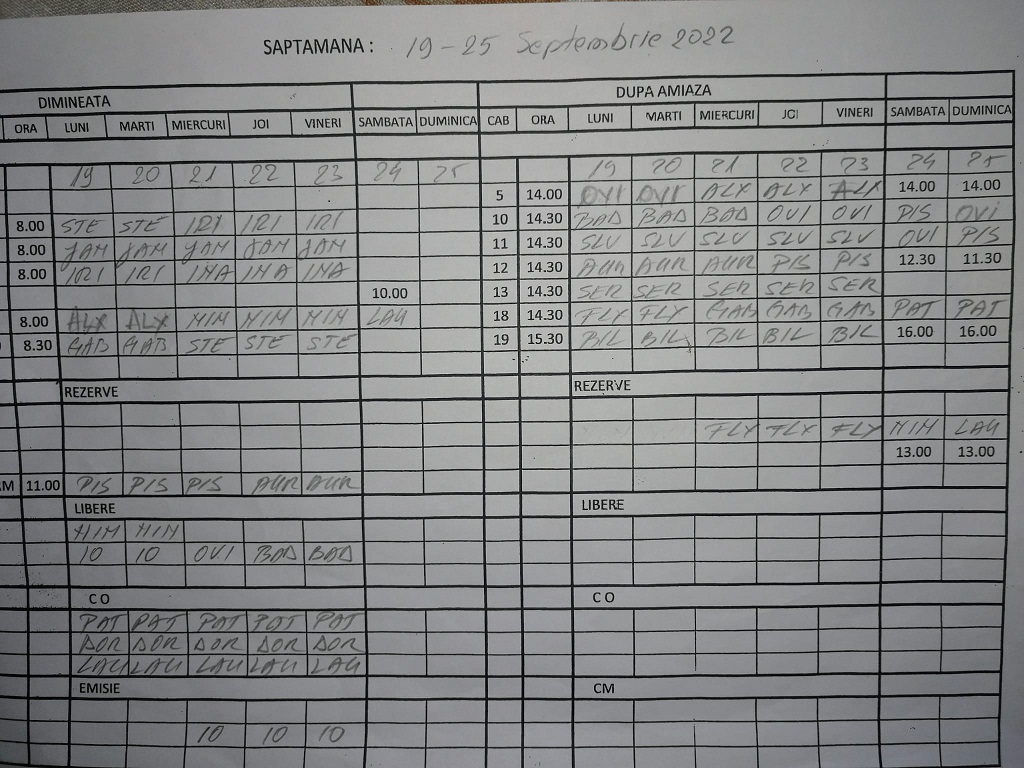 SAPTAMANA : 19-25 Septembrie 2022
DIMINEATA DUPA AMIAZA
ORA LUNI MARTI MIERCURI JOI VINERI SAMBATA DUMINICA CAB ORA LUNI MARTI MIERCURI JOI VINERI SAMBATA DUMINICA
19 20 21 22 23 24 25 19 20 21 22 23 24 25
5 14.00 OVI OVI ALX ALX ALX 14.00 14.00
8.00 STE STE IRI IRI IRI 10 14.30 BAD BAD BAD OVI OVI PIS OVI
8.00 JAM JAM JAM JAM JAM 11 14.30 SLV SLV SLV SLV SLV OVI PIS
8.00 IRI IRI INA INA INA 12 14.30 AUR AUR AUR PIS PIS 12.30 11.30
10.00 13 14.30 SER SER SER SER SER
8.00 ALX ALX MIM MIM MIM LAU 18 14.30 FLX FLX GAB GAB GAB PAT PAT
8.30 GAB GAB STE STE STE 19 15.30 BIL BIL BIL BIL BIL 16.00 16.00
REZERVE REZERVE
FLX FLX FLX MIM LAU
13.00 13.00
11.00 PIS PIS PIS AUR AUR
LIBERE LIBERE
MIM MIM
10 10 OVI BAD BAD
CO CO
PAT PAT PAT PAT PAT
DOR DOR DOR DOR DOR
LAU LAU LAU LAU LAU
EMISIE CM
10 10 10